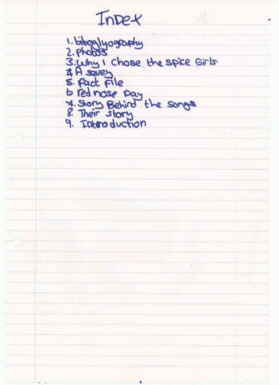 Index
1. bibgalyography
2. photos
3. Why I chose the spice Girls
4 A survey
5. Fact File
6 red nose Day
7. Story Behind the songs
8. Their story
9. Introduction